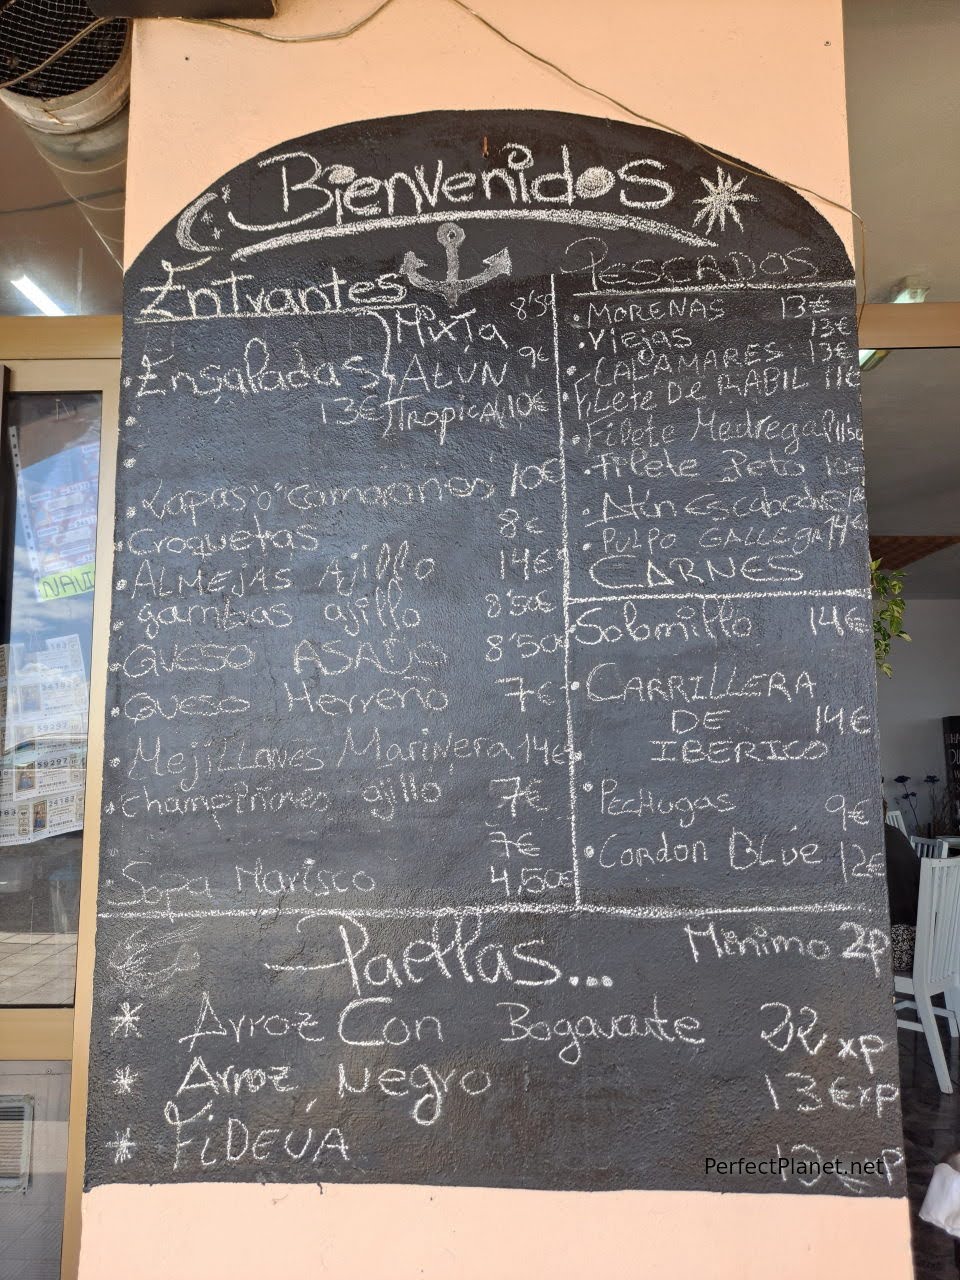 Bienvenidos
Entrantes
Mixta 8'50
Ensaladas Atún 9€
13€ Tropical 10€
Lapas "o" camarones 10€
Croquetas 8€
ALMEJAS Ajillo 14€
gambas ajillo 8'50€
QUESO ASADO 8'50€
QUESO Herreño 7€
Mejillones Marinera 14€
champiñones ajillo 7€
7€
Sopa Marisco 4,50€
PESCADOS
MORENAS 13€
Viejas 13€
CALAMARES 13€
FiLete DE RABIL 11€
Filete Medregal 11'50
Filete Peto 10€
Atún Escabeche
PULPO GALLEGA 14€
CARNES
Solomillo 14€
CARRILLERA
DE 14€
IBERICO
PECHUGAS 9€
Cordon BLUE 12€
Paellas... Minimo 2p
Arroz Con Bogavante 22 xp
Arroz Negro 13€xp
FiDEUA
PerfectPlanet.net